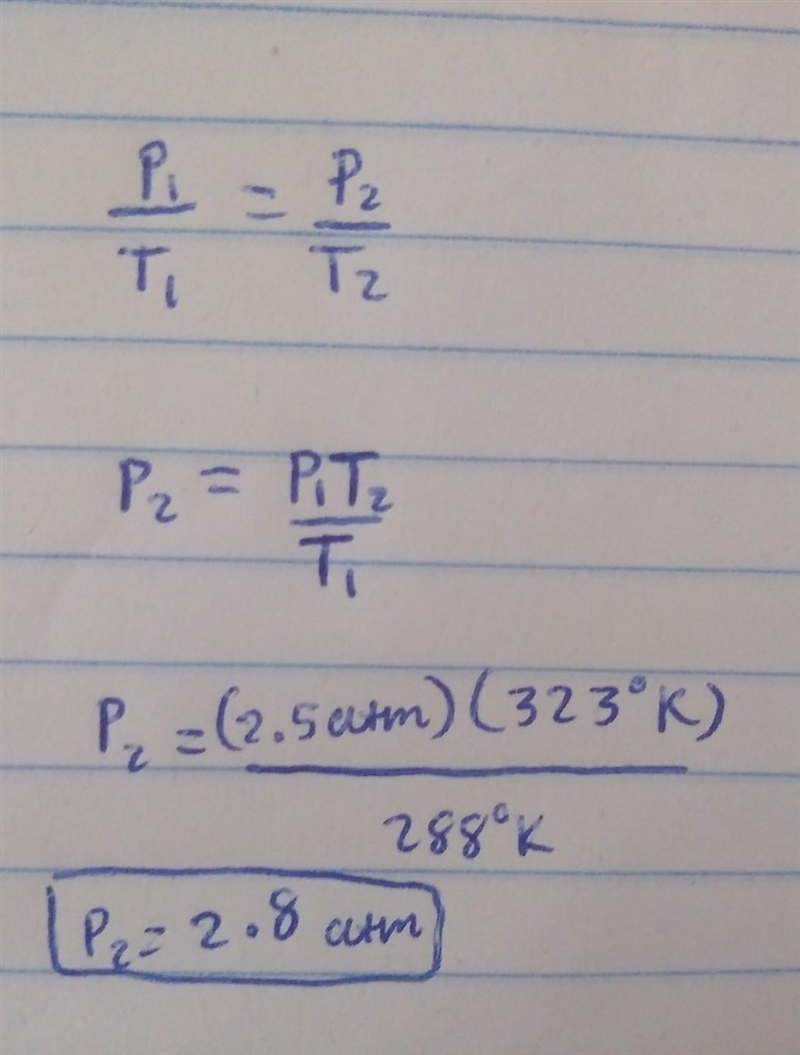 P₁/T₁ = P₂/T₂
P₂ = P₁T₂/T₁
P₂ = (2.5 atm)(323°K)/288°K
P₂ = 2.8 atm